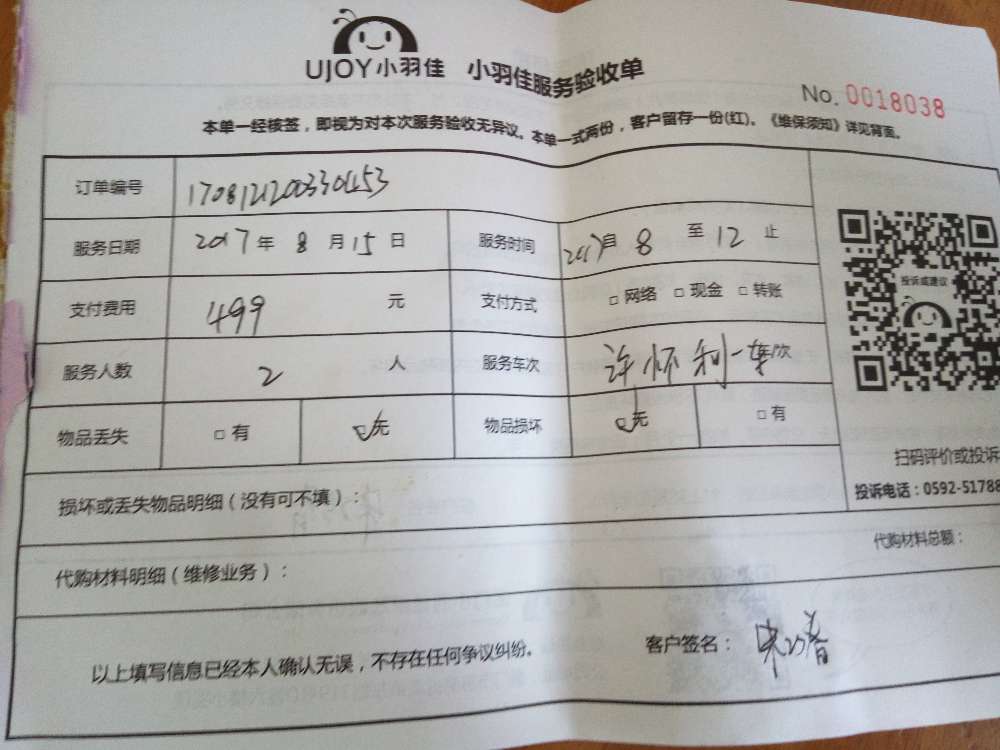 UJOY小羽佳 小羽佳服务验收单
No. 0018038
本单一经核签，即视为对本次服务验收无异议。本单一式两份，客户留存一份(红)。《维保须知》详见背面。
订单编号
服务日期 2017 年 8 月 15 日 服务时间 2017 自 8 至 12 止
支付费用 499 元 支付方式 □ 网络 □ 现金 □ 转账
服务人数 2 人 服务车次 许怀利一车次
物品丢失 □ 有 □ 无 物品损坏 □ 无 □ 有
投诉或建议
扫码评价或投诉
投诉电话：0592-51788
损坏或丢失物品明细（没有可不填）：
代购材料明细（维修业务）： 代购材料总额：
以上填写信息已经本人确认无误，不存在任何争议纠纷。 客户签名：